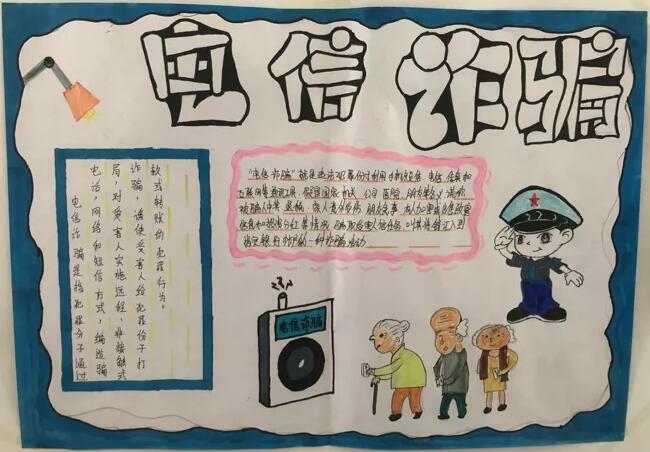 电信诈骗
电信诈骗是指犯罪分子通过
电话,网络和短信方式,编造骗
局,对受害人实施远程,非接触式
诈骗,诱使受害人给犯罪份子打
款或转账的犯罪行为。
"电信诈骗"就是违法犯罪份子利用手机短信 电话 传真和
互联网等通讯工具,假冒国家机关 公司 医院 朋友等名义
被骗人中奖 退税 家人意外受伤 朋友急事 有人加害
信息和投资分红等情况 骗取受害人 将钱汇入到
指定银行帐户的一种诈骗活动
电信诈骗